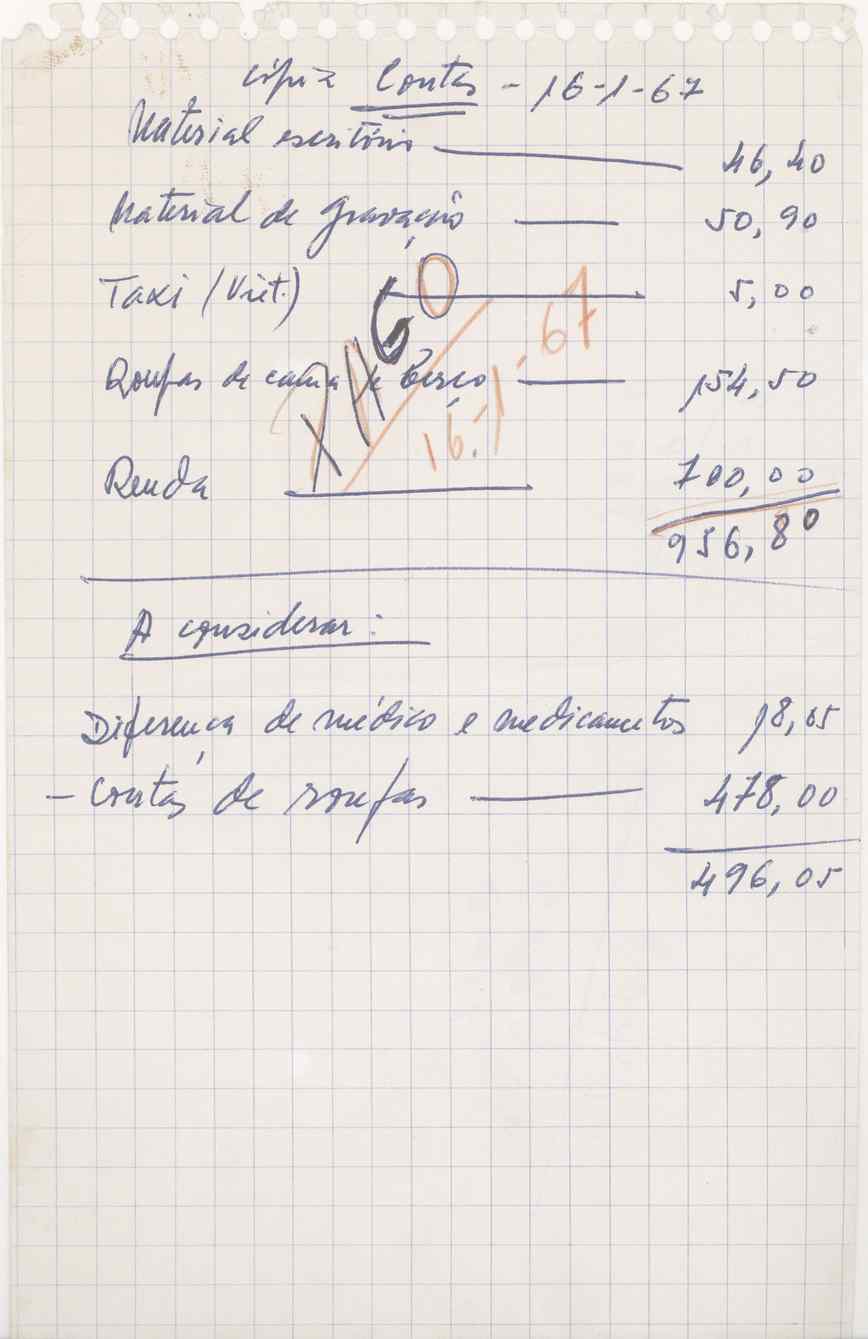 cópia Contas - 16-1-67
Material escritório 46,40
Material de gravação 50,90
Taxi (Vict.) 5,00
Roupas de cama e berço 154,50
Renda 700,00
956,80
PAGO
16-1-67
A considerar:
Diferença de médico e medicametos 18,05
- Contas de roupas 478,00
496,05